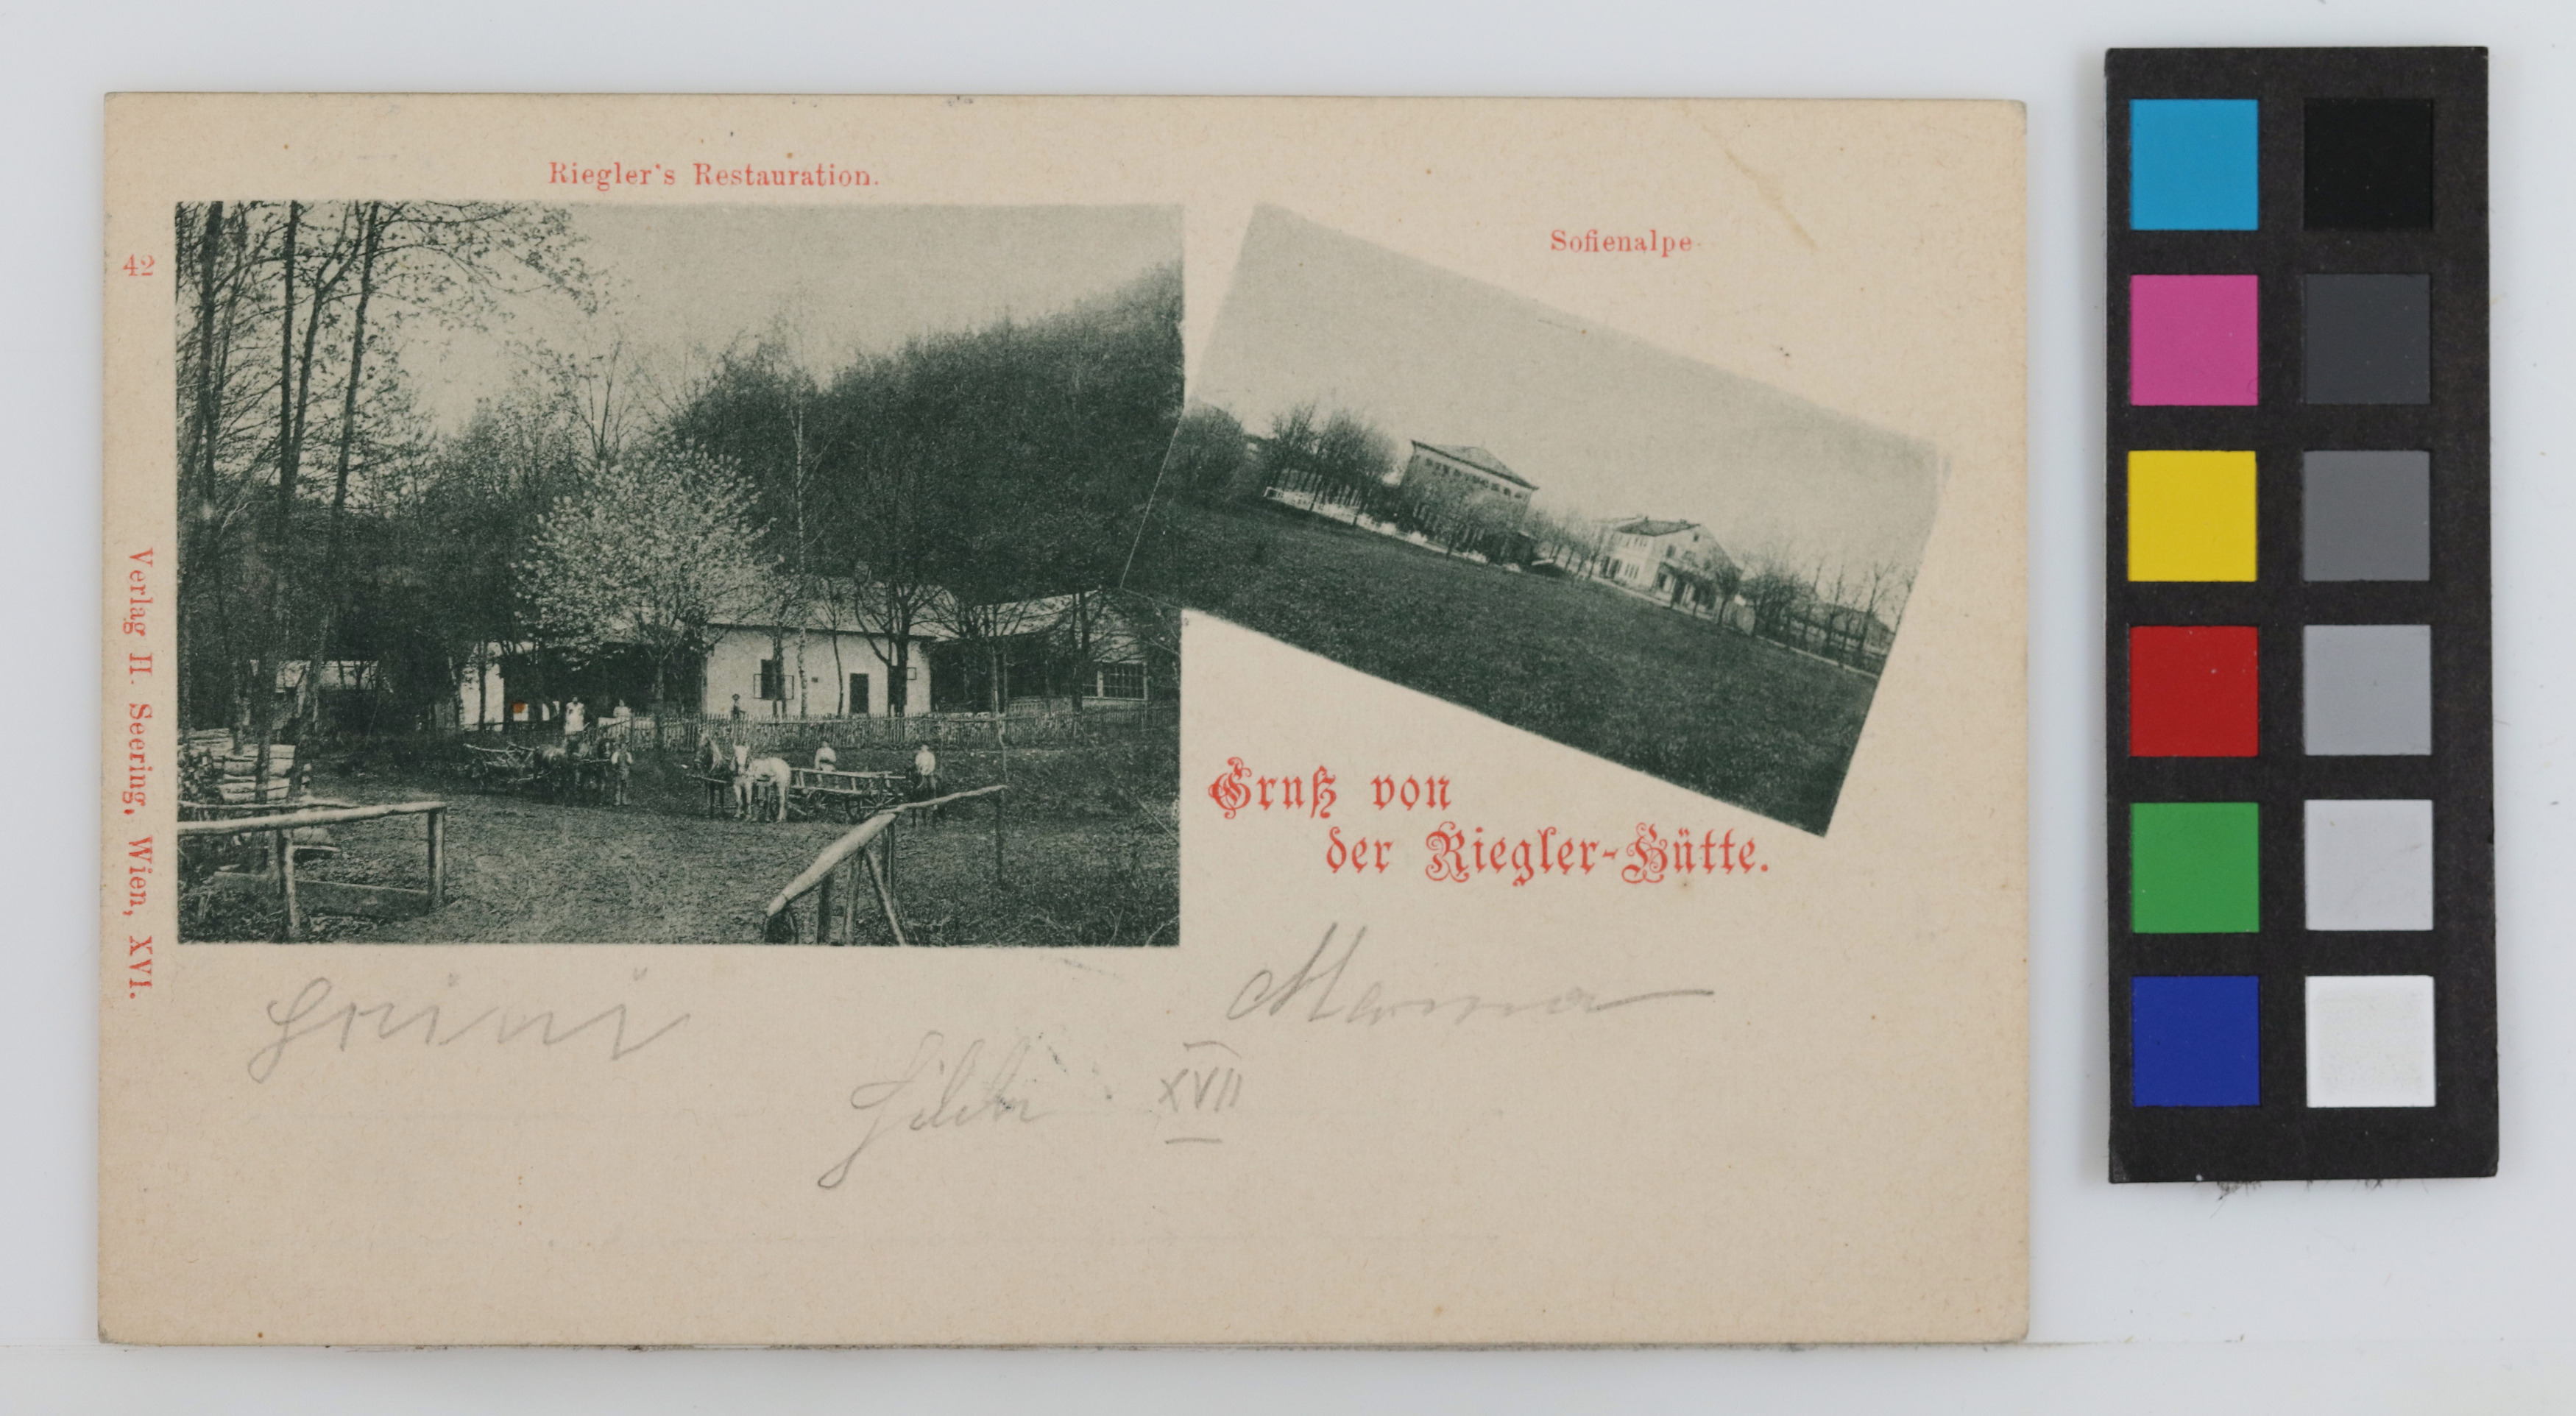 Riegler's Restauration.
Sofienalpe
42
Verlag H. Seering, Wien, XVI.
Gruß von
der Riegler-Hütte.
Mamma
XVII